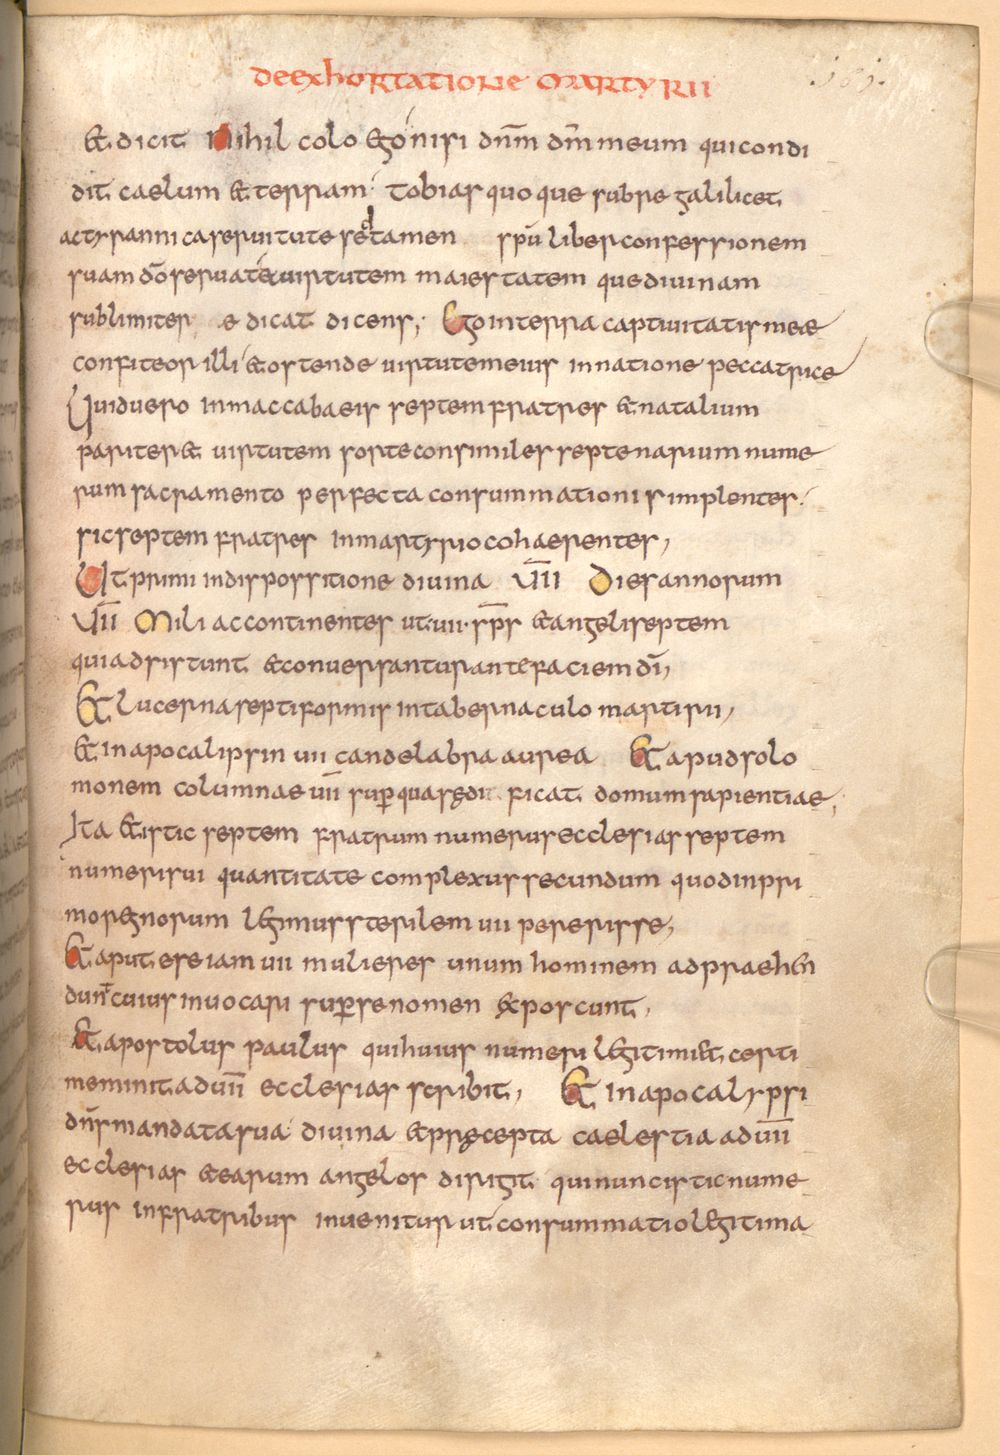 de exhortatione martyrii
et dicit Nihil colo ego nisi dnm dm meum qui condi
dit caelum et terram Tobias quoque sub regali licet
ac tyrannica seruitute sed tamen spu liber confessionem
suam do seruat et uirtutem maiestatem que diuinam
sublimiter e dicat dicens; Ego in terra captiuitatis meae
confiteor illi et ostende uirtutem eius in natione peccatrice
Quid uero in maccabaeis septem fratres et natalium
pariter et uirtutem sorte consimiles septenarium nume
rum sacramento perfecta consummationis implentes
sic septem fratres in martyrio cohaerentes,
Ut primi in dispossitione diuina VII Dies annorum
VII Mili ac continentes ut uii sps et angeli septem
qui adsistunt et conuersantur ante faciem di,
Et lucerna septiformis in tabernaculo martirii,
et in apocalipsin uii candelabra aurea Et apud solo
monem columnae uii super quas edi ficat domum sapientiae,
Ita et istic septem fratrum numerus ecclesias septem
numeri sui quantitate complexus secundum quod in pri
mo regnorum legimus sterilem uii peperisse,
Et aput eseiam uii mulieres unum hominem ad praehen
dunt cuius inuocari super se nomen exposcunt,
Et apostolus paulus qui huius numeri legitimi et certi
meminit ad uii ecclesias scribit, Et in apocalypsi
dns mandata sua diuina et precepta caelestia ad uii
ecclesias et earum angelos dirigit qui nunc istic nume
rus in fratribus inuenitur ut consummatio legitima